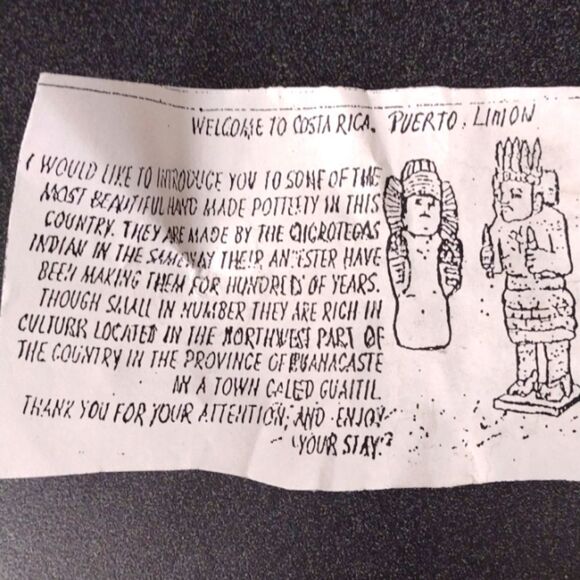 WELCOME TO COSTA RICA. PUERTO. LIMON
I WOULD LIKE TO INTRODUCE YOU TO SOME OF THE
MOST BEAUTIFUL HAND MADE POTTETY IN THIS
COUNTRY. THEY ARE MADE BY THE CHOROTEGAS
INDIAN IN THE SAME WAY THEIR ANSESTER HAVE
BEEN MAKING THEM FOR HUNDREDS OF YEARS.
THOUGH SMALL IN NUMBER THEY ARE RICH IN
CULTURE LOCATED IN THE NORTHWEST PART OF
THE COUNTRY IN THE PROVINCE OF GUANACASTE
IN A TOWN CALED GUAITIL.
THANK YOU FOR YOUR ATTENTION, AND ENJOY
YOUR STAY.